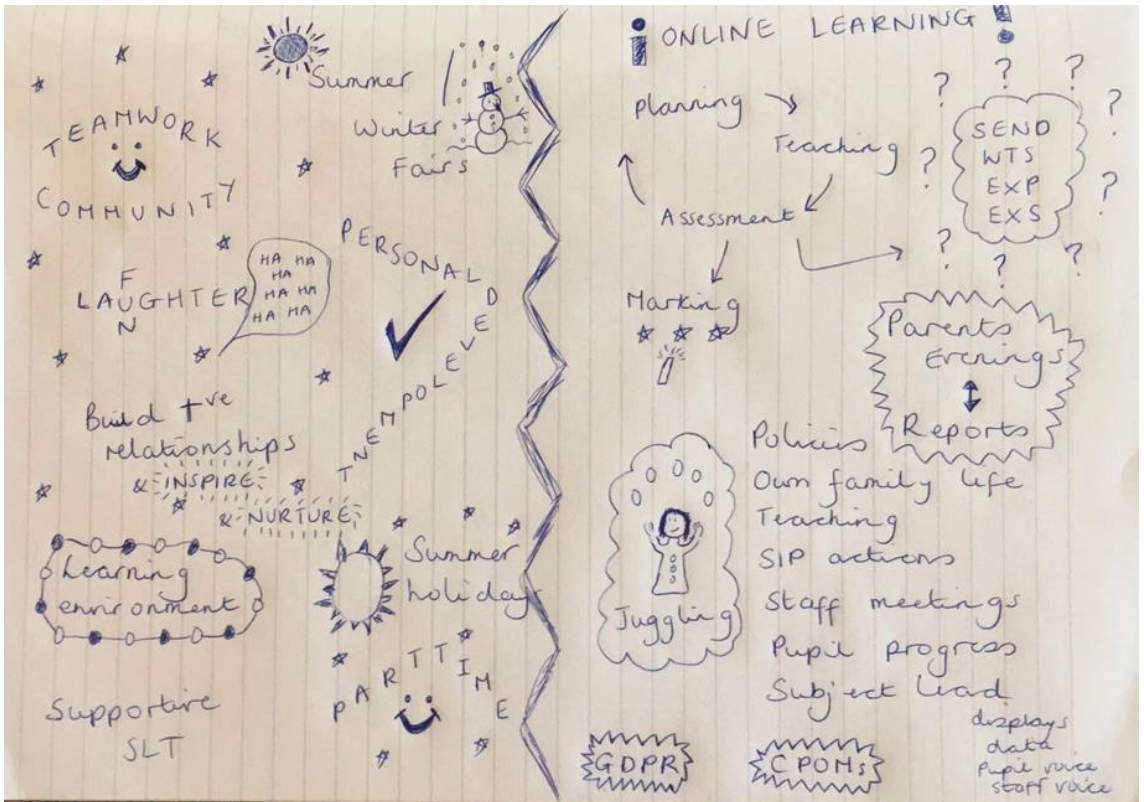 Summer
Winter
Fairs
TEAMWORK
COMMUNITY
LAUGHTER
FUN
HA HA
HA
HA HA
HA HA
PERSONAL
DEVELEOPMENT
Build +ve
relationships
& INSPIRE
& NURTURE
Learning
environment
Summer
holidays
PART TIME
Supportive
SLT
¡ ONLINE LEARNING !
Planning
Teaching
Assessment
Marking
? ? ? ? ? ? ? ? ? ?
SEND
WTS
EXP
EXS
Parents
Evenings
Reports
Juggling
Policies
Own family life
Teaching
SIP actions
Staff meetings
Pupil progress
Subject lead
displays
data
Pupil voice
staff voice
GDPR
CPOMs